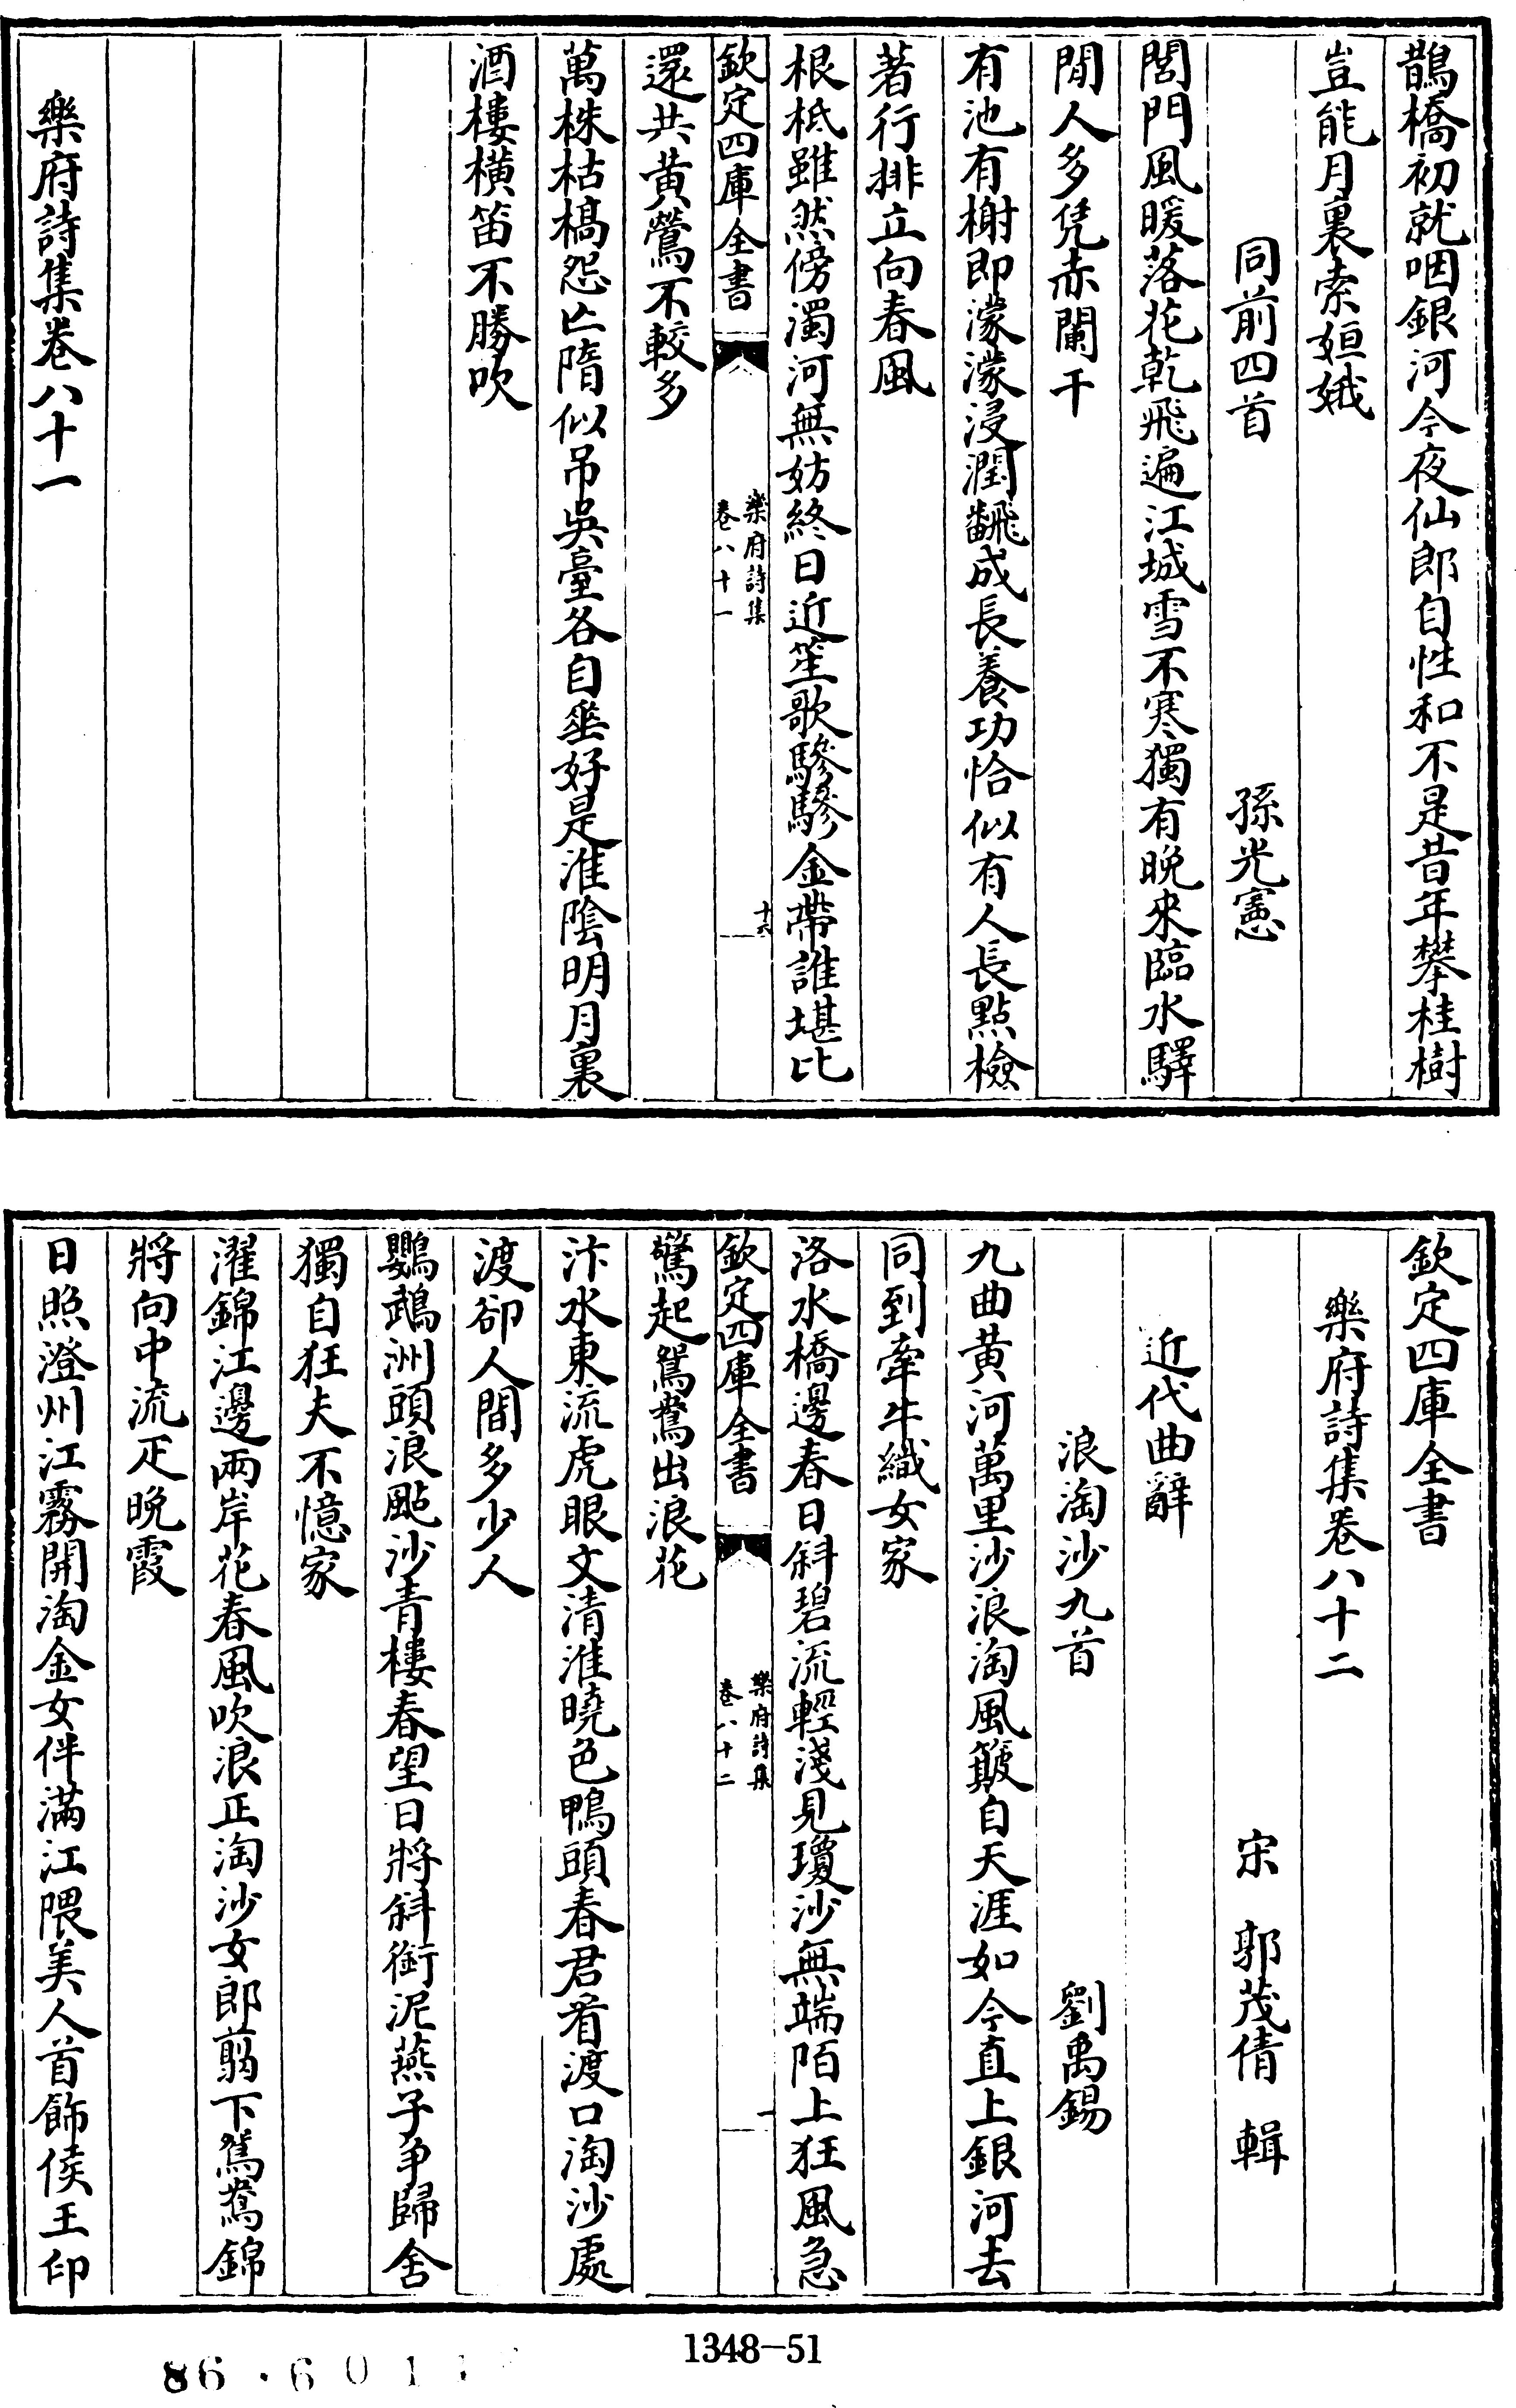 鵲橋初就咽銀河今夜仙郎自性和不是昔年攀桂樹
豈能月裏索姮娥
同前四首 孫光憲
閶門風暖落花乾飛遍江城雪不寒獨有晚來臨水驛
閒人多凭赤闌干
有池有榭即濛濛浸潤飜成長養功恰似有人長點檢
著行排立向春風
根柢雖然傍濁河無妨終日近笙歌驂驂金帶誰堪比
欽定四庫全書
樂府詩集
卷八十一
十六
還共黃鶯不較多
萬株枯槁怨亾隋似吊吳臺各自垂好是淮陰明月裏
酒樓橫笛不勝吹
樂府詩集卷八十一
欽定四庫全書
樂府詩集卷八十二
宋 郭茂倩 輯
近代曲辭
浪淘沙九首 劉禹錫
九曲黃河萬里沙浪淘風簸自天涯如今直上銀河去
同到牽牛織女家
洛水橋邊春日斜碧流輕淺見瓊沙無端陌上狂風急
欽定四庫全書
樂府詩集
卷八十二
一
驚起鴛鴦出浪花
汴水東流虎眼文清淮曉色鴨頭春君看渡口淘沙處
渡卻人間多少人
鸚鵡洲頭浪颭沙青樓春望日將斜銜泥燕子爭歸舍
獨自狂夫不憶家
濯錦江邊兩岸花春風吹浪正淘沙女郎翦下鴛鴦錦
將向中流疋晚霞
日照澄州江霧開淘金女伴滿江隈美人首飾侯王印
1348-51